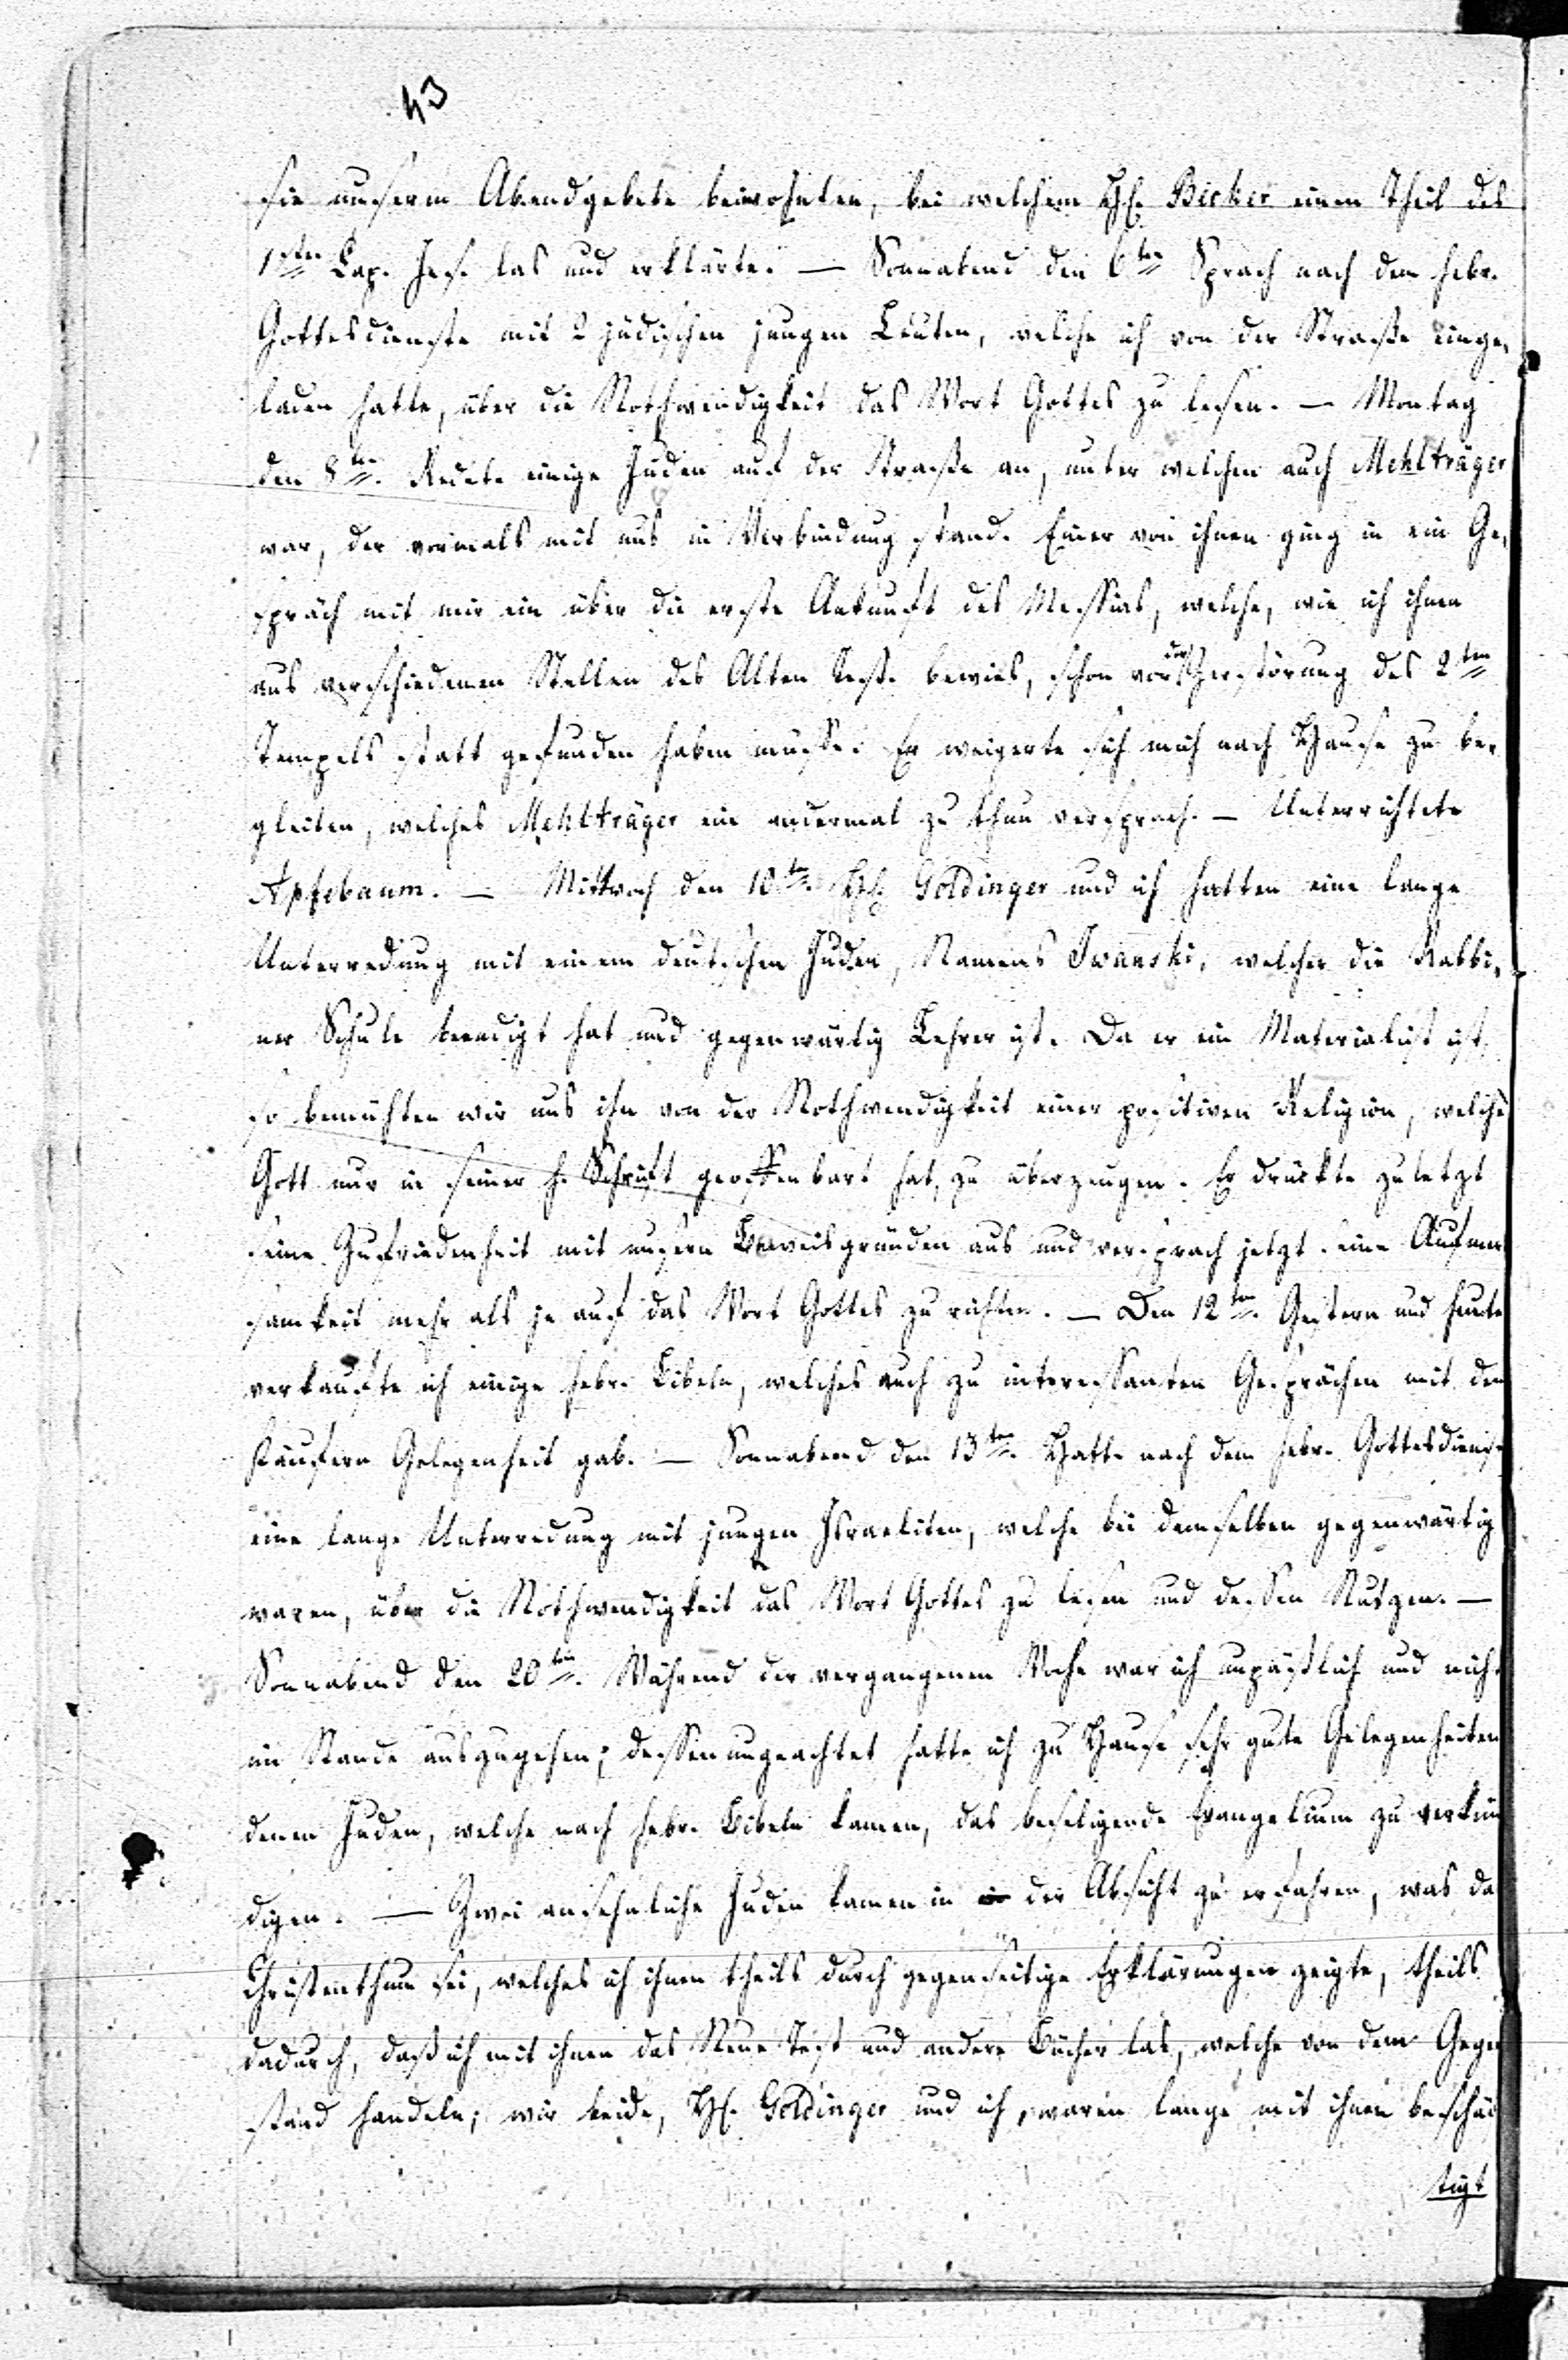 43
sie unserm Abendgebete beiwohnten, bei welchem H. Becker einen Theil des
1sten Cap. Jes. las und erklärte. — Sonnabend den 6ten Sprach nach dem hebr.
Gottesdienste mit 2 jüdischen jungen Leuten, welche ich von der Straße einge-
laden hatte, über die Nothwendigkeit das Wort Gottes zu lesen. — Montag
den 8ten. Redete einige Juden auf der Straße an, unter welchen auch Mehlträger
war, der vormals mit uns in Verbindung stand. Einer von ihnen ging in ein Ge-
spräch mit mir ein über die erste Ankunft des Messias, welche, wie ich ihnen
aus verschiedenen Stellen des Alten Test. bewies, schon vor der Zerstörung des 2ten
Tempels statt gefunden haben musste. Er weigerte sich mich nach Hause zu be-
gleiten, welches Mehlträger ein andermal zu thun versprach. — Unterrichtete
Apfebaum. — Mittwoch den 10ten. H. Goldinger und ich hatten eine lange
Unterredung mit einem deutschen Juden, Namens Iwanski, welcher die Rabbi-
ner Schule beendigt hat und gegenwärtig Lehrer ist. Da er ein Materialist ist,
so bemühten wir uns ihn von der Nothwendigkeit einer positiven Religion, welche
Gott nur in seiner h. Schrift geoffenbart hat, zu überzeugen. Er drückte zuletzt
seine Zufriedenheit mit unsern Beweisgründen aus und versprach jetzt seine Aufmer
samkeit mehr als je auf das Wort Gottes zu richten. — Den 12ten. Gestern und heute
verkaufte ich einige hebr. Bibeln, welches auch zu interessanten Gesprächen mit den
Käufern Gelegenheit gab. — Sonnabend den 13ten. Hatte nach dem hebr. Gottesdienst
eine lange Unterredung mit jungen Israeliten, welche bei demselben gegenwärtig
waren, über die Nothwendigkeit das Wort Gottes zu lesen und dessen Nutzen. —
Sonnabend den 20ten. Während der vergangenen Woche war ich unpäßlich und nicht
im Stande auszugehen; dessen ungeachtet hatte ich zu Hause sehr gute Gelegenheiten
denen Juden, welche nach hebr. Bibeln kamen, das beseligende Evangelium zu verkün
digen. — Zwei ansehnliche Juden kamen in der Absicht zu erfahren, was da
Christenthum sei, welches ich ihnen theils durch gegenseitige Erklärungen zeigte, theils
dadurch, daß ich mit ihnen das Neue Test und andere Bücher las, welche von dem Gegen
stand handeln; wir beide, H. Goldinger und ich, waren lange mit ihnen beschäf
tigt